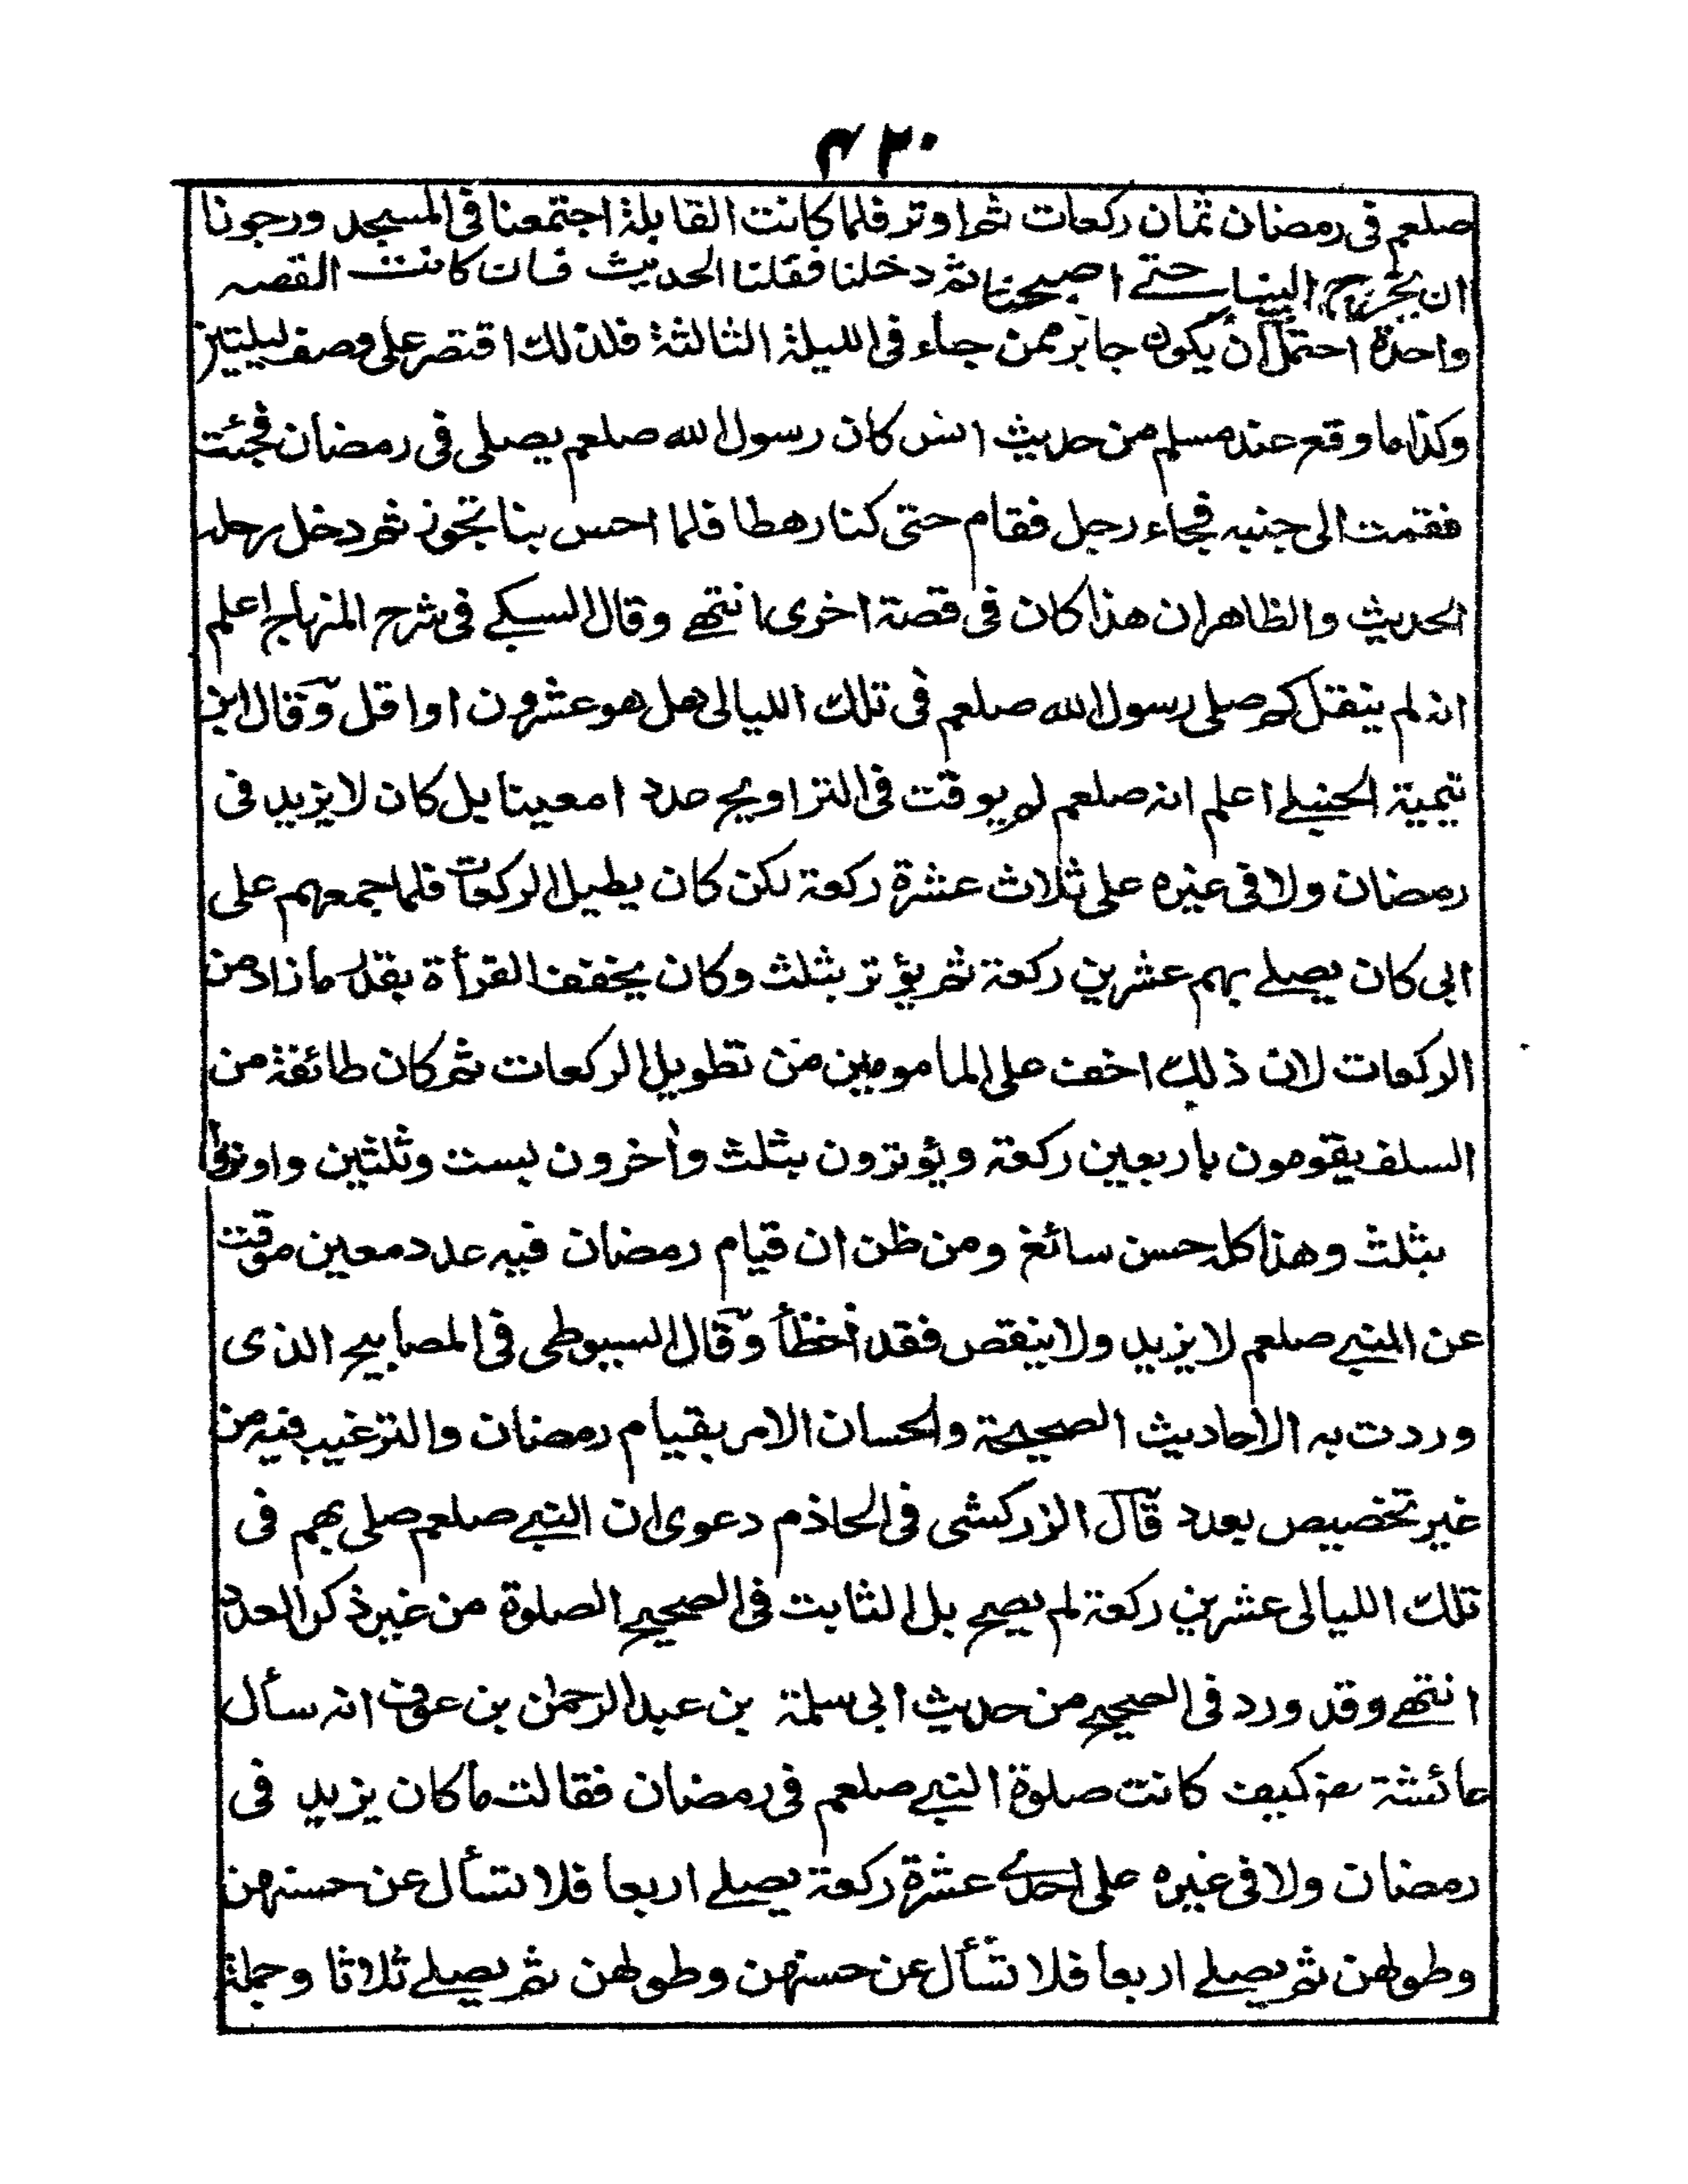 ۴۳۰
صلعم فى رمضان ثمان ركعات ثم اوتر فلما كانت القابلة اجتمعنا فى المسجد ورجونا
ان يخرج الينا حتے اصبحنا ثم دخلنا فقلنا الحديث فان كانت القصه
واحدة احتمل ان يكون جابر ممن جاء فى الليلة الثالثة فلذلك اقتصر على وصف ليلتين
وكذا ما وقع عند مسلم من حديث انس كان رسول الله صلعم يصلى فى رمضان فجئت
فقمت الى جنبه فجاء رجل فقام حتى كنا رهطا فلما احس بنا تجوز ثم دخل رحله
الحديث والظاهر ان هذا كان فى قصة اخرى انتهے وقال السبكے فى شرح المنهاج اعلم
انه لم ينقل كم صلى رسول الله صلعم فى تلك الليالى هل هو عشرون او اقل وقال ابن
تيمية الحنبلے اعلم انه صلعم لم يوقت فى التراويح عدد امعينا بل كان لا يزيد فى
رمضان ولا فى غيره على ثلاث عشرة ركعة لكن كان يطيل الركعات فلما جمعهم على
ابى كان يصلے بهم عشرين ركعة ثم يؤتر بثلث وكان يخفف القرأة بقدر ما زاد من
الركعات لان ذلك اخف على المامومين من تطويل الركعات ثم كان طائفة من
السلف يقومون باربعين ركعة ويؤترون بثلث وأخرون بست وثلثين واوتروا
بثلث وهذا كله حسن سائغ ومن ظن ان قيام رمضان فيه عدد معين موقت
عن النبے صلعم لا يزيد ولا ينقص فقد أخطأ وقال السيوطى فى المصابيح الذى
وردت به الاحاديث الصحيحة والحسان الامر بقيام رمضان والترغيب فيه من
غير تخصيص بعدد قال الزركشى فى الخادم دعوى ان النبے صلعم صلى بهم فى
تلك الليالى عشرين ركعة لم يصح بل الثابت فى الصحيح الصلوة من غير ذكر العدد
انتهے وقد ورد فى الصحيح من حديث ابى سلمة بن عبد الرحمٰن بن عوف انه سأل
عائشة رضـ كيف كانت صلوة النبے صلعم فى رمضان فقالت ما كان يزيد فى
رمضان ولا فى غيره على احدے عشرة ركعة يصلے اربعا فلا تسأل عن حسنهن
وطولهن ثم يصلے اربعا فلا تسأل عن حسنهن وطولهن ثم يصلے ثلاثا وجملة